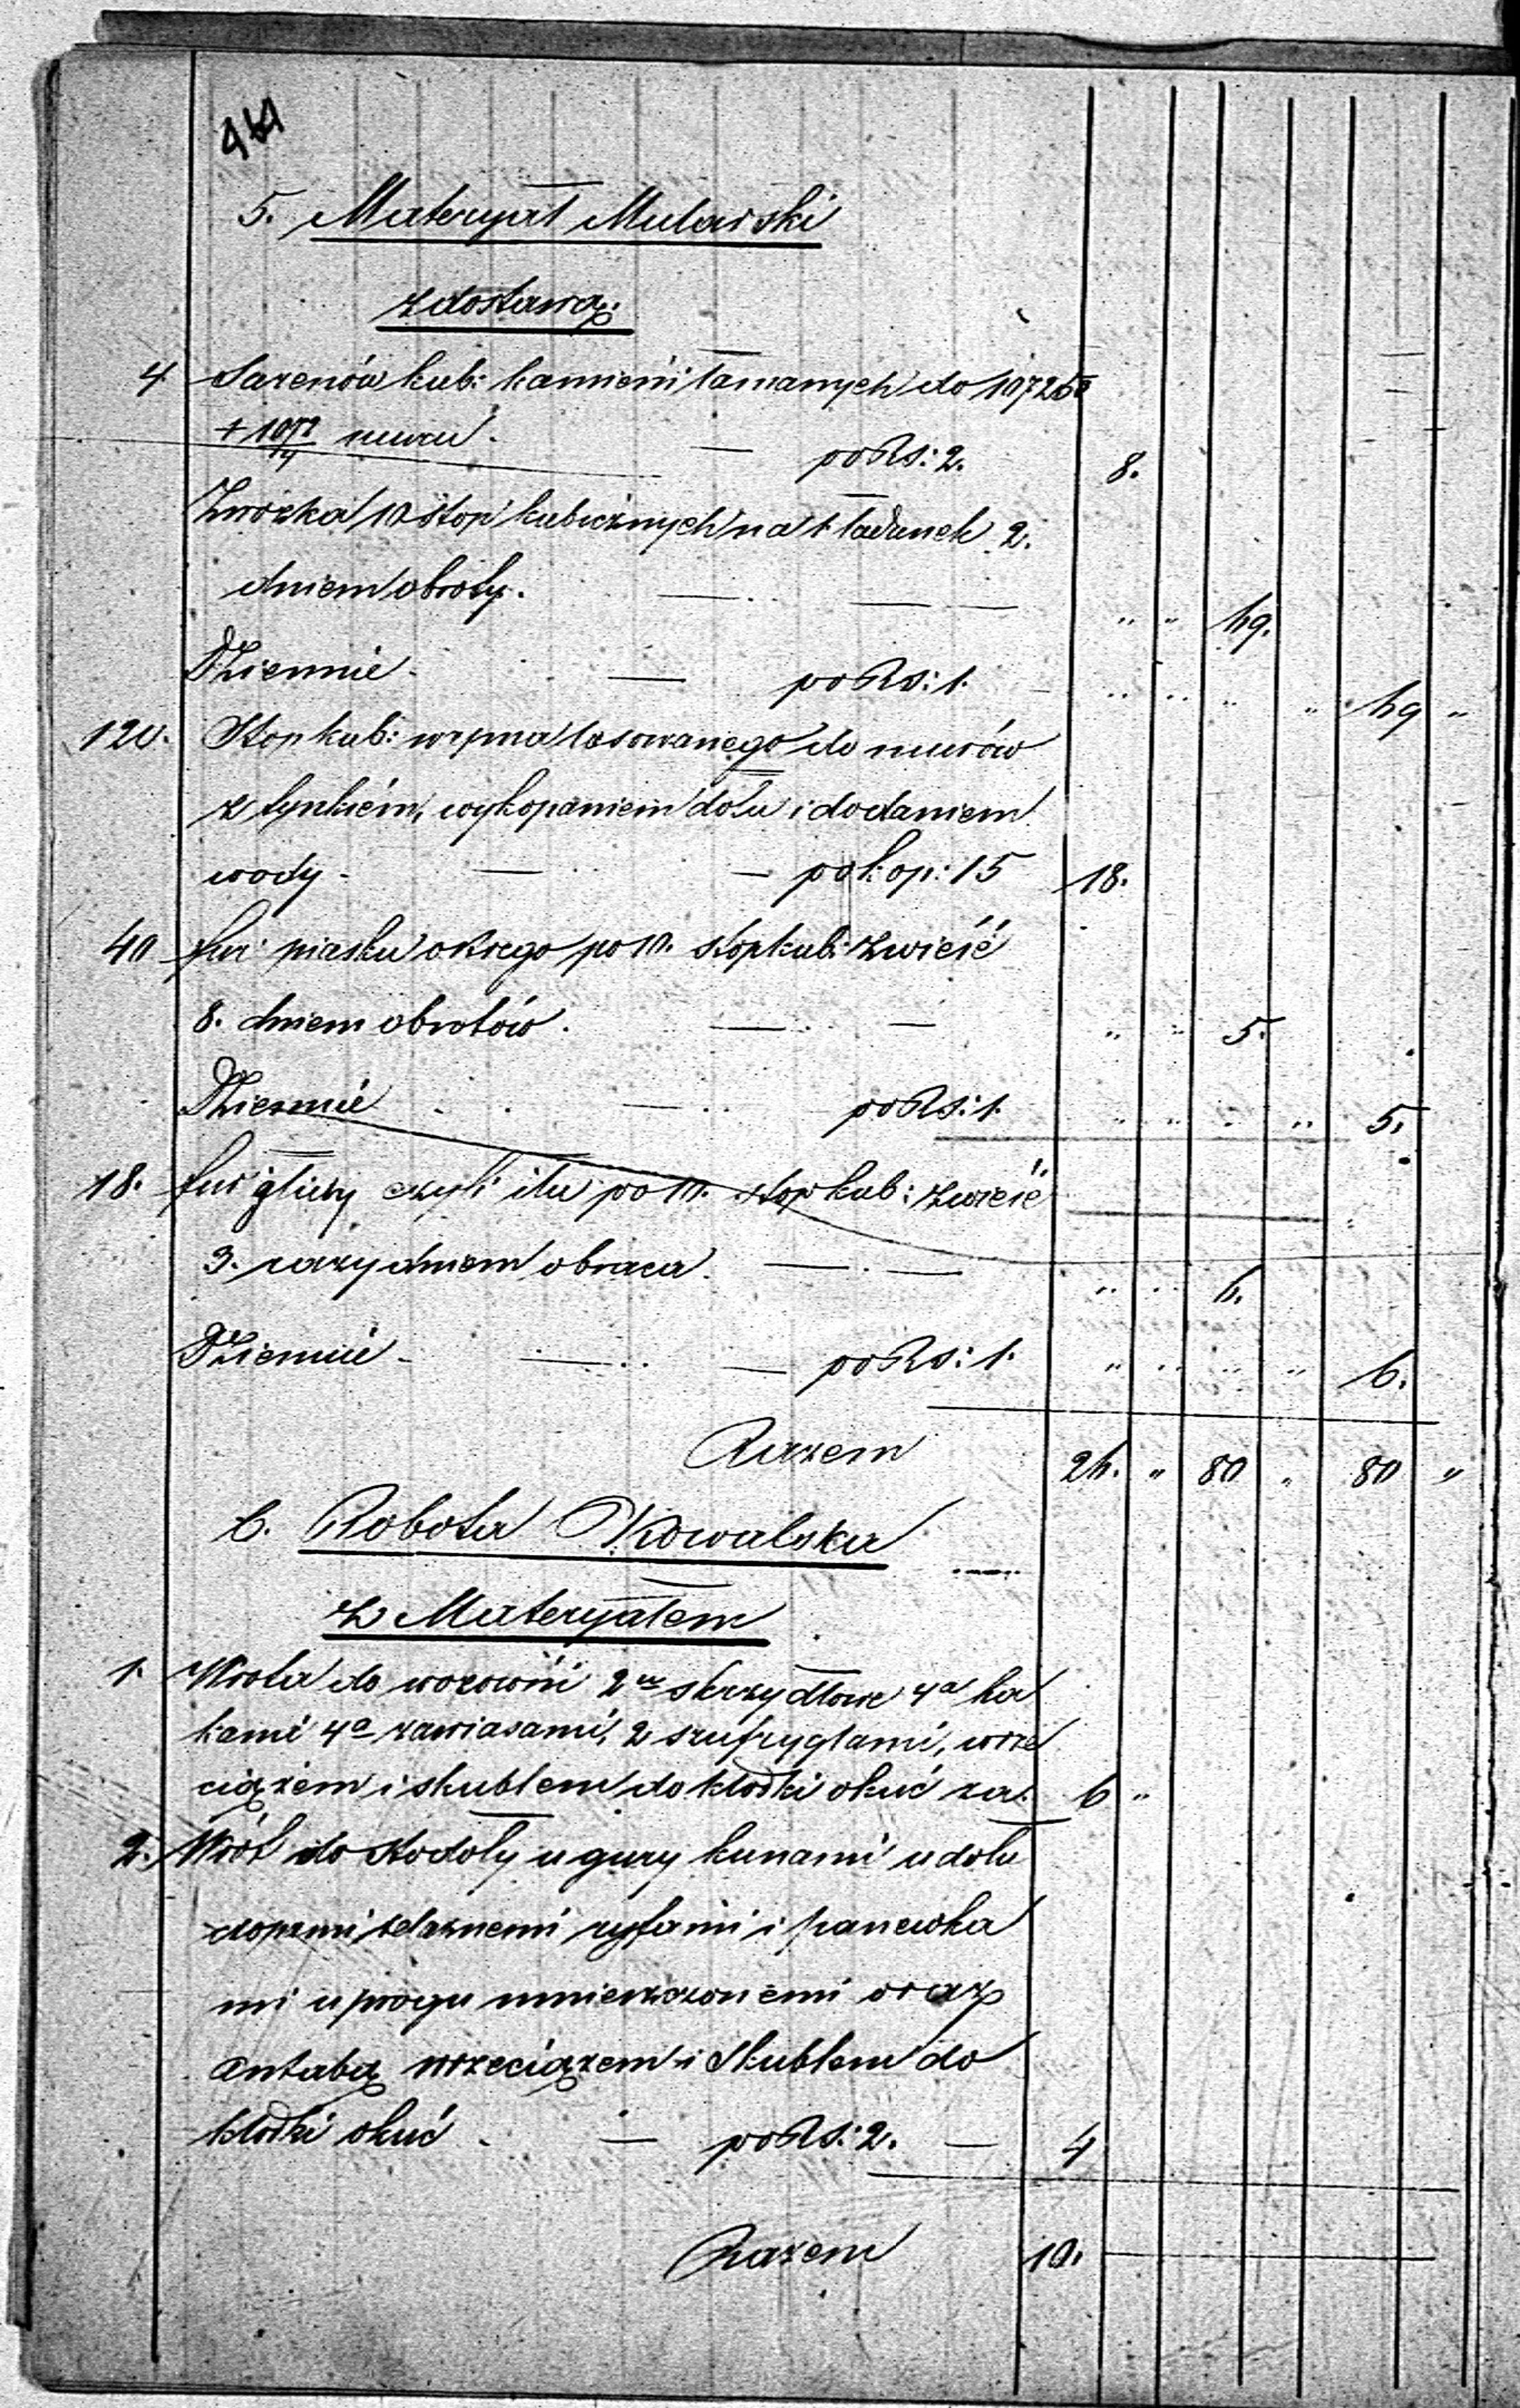 5. Materyał Mularski
z dostawą.
4 Sazenów kub: kamieni łamanych do 1072
muru. po Rs: 2. 8.
Zwózka 10 stop kubicznych na 1 ładunek 2.
dniem obroty. " " 69.
Dziennie po Rs: 1. " " " " 69 "
120. Stop kub: wapna lasowanego do murów
z tynkiem, wykopaniem dołu i dodaniem
wody - po kop: 15 18.
40 fur piasku ostrego po 10. stop kub: zwieść
8. dniem obrotów. " " 5.
Dziennie po Rs: 1. " " " " 5.
18. fur gliny czyli iłu po 10. stop kub: zwieść
3. razy dniem obraca. " " 6.
Dziennie - po Rs: 1. " " " " 6.
Razem 26. " 80 " 80 "
6. Robota Kowalska
z Materyałem
1. Wrota do wozowni 2 skrzydłowe 4a ha
kami 4a zawiasami, 2 szufryglami, wrze
ciązem i skublem do kłodki okuć za. 6 "
2. Wrót do stodoły u gury kunami u dołu
czopami żelaznemi ryfami i panewka
mi u progu umieszczonemi oraz
antabą wrzeciązem i skublem do
kłodki okuć - po Rs: 2. 4
Razem 10.